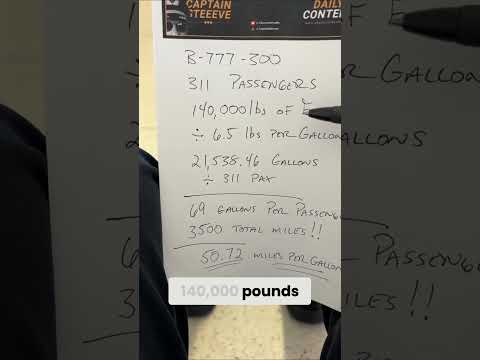 CAPTAIN
STEEEVE
DAILY
CONTEN
B-777-300
311 PASSENGERS
140,000 lbs OF
÷ 6.5 lbs PER GALLON
21,538.46 GALLONS
÷ 311 PAX
69 GALLONS PER PASSENGE
3500 TOTAL MILES!!
50.72 MILES PER GALLON
140,000 pounds
69
ER GALLON
ALLONS
PASSENGE
ILES!!